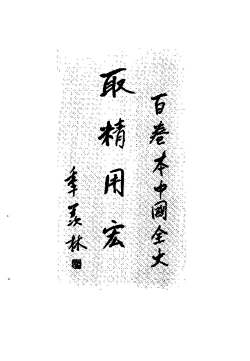 百卷本中國全史
取精用宏
季羡林